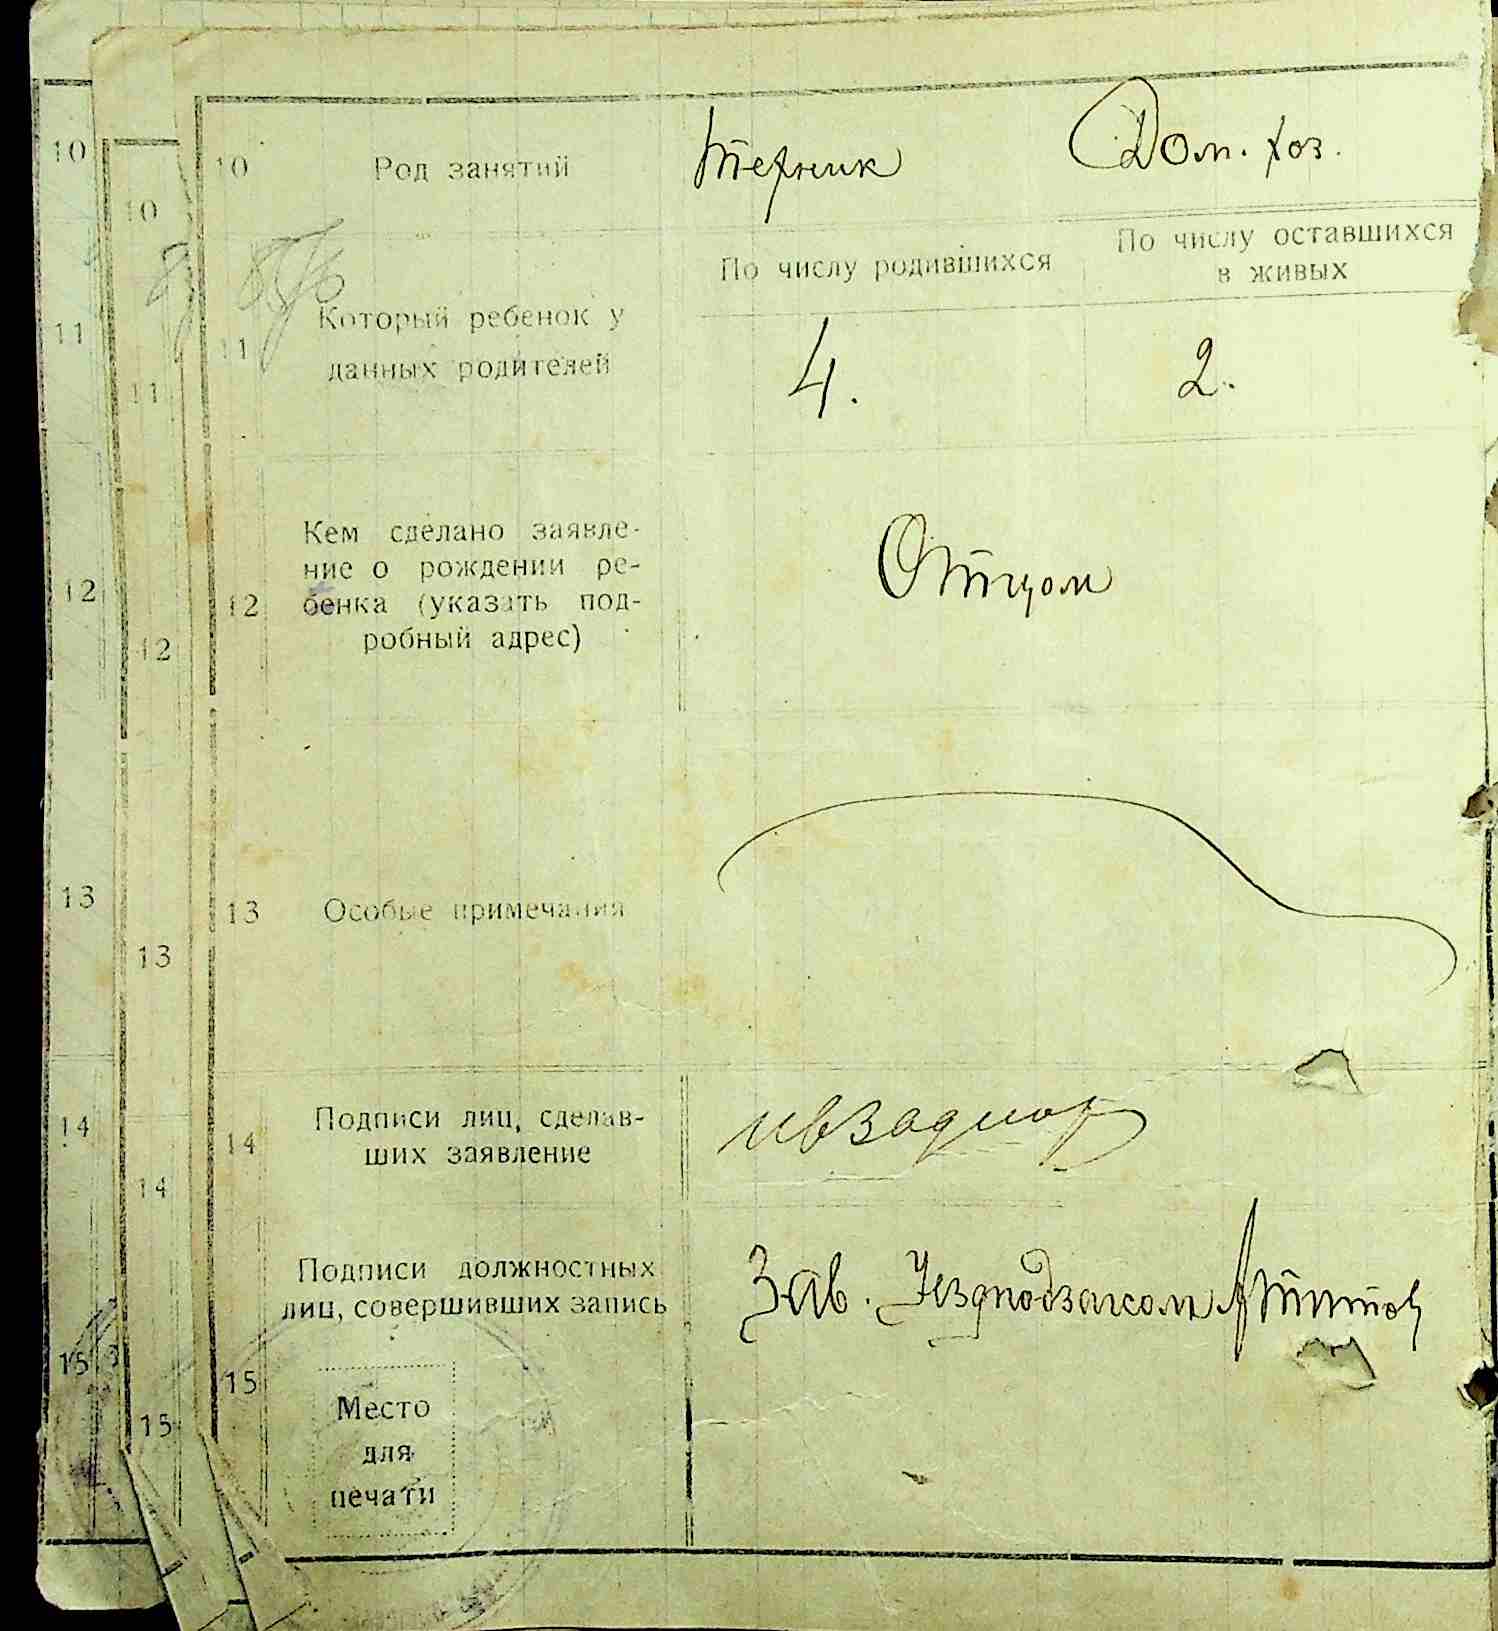 10
10
10
Род занятий
Дом. хоз.
По числу родившихся
По числу оставшихся
в живых
11
11
11
Который ребенок у
данных родителей
4.
2.
12
12
12
Кем сделано заявле-
ние о рождении ре-
бенка (указать под-
робный адрес)
Отцом
13
13
13
Особые примечания
14
14
14
Подписи лиц, сделав-
ших заявление
15
15
15
Подписи должностных
лиц, совершивших запись
Зав.
Место
для
печати